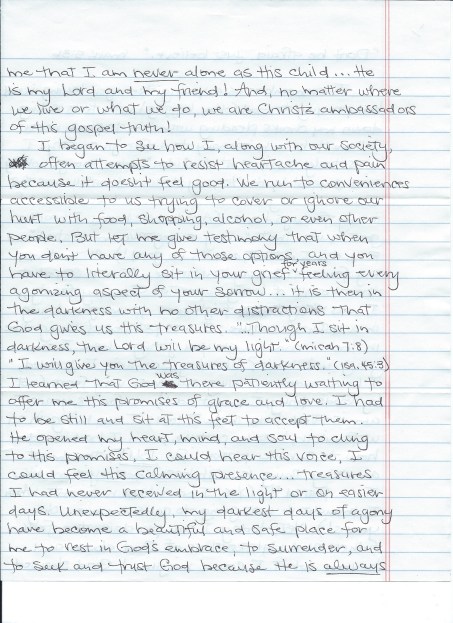 me that I am never alone as His child... He
is my Lord and my friend! And, no matter where
we live or what we do, we are Christ's ambassadors
of His gospel truth!
I began to see how I, along with our society,
often attempts to resist heartache and pain
because it doesn't feel good. We run to conveniences
accessible to us trying to cover or ignore our
hurt with food, shopping, alcohol, or even other
people. But let me give testimony that when
you don't have any of those options, and you
have to literally sit in your grief for years feeling every
agonizing aspect of your sorrow... it is then in
the darkness with no other distractions that
God gives us His treasures. "Though I sit in
darkness, the Lord will be my light." (Micah 7:8)
"I will give you the treasures of darkness." (Isa. 45:3)
I learned that God was there patiently waiting to
offer me His promises of grace and love. I had
to be still and sit at His feet to accept them.
He opened my heart, mind, and soul to cling
to His promises, I could hear His voice, I
could feel His calming presence... treasures
I had never received in the light or on easier
days. Unexpectedly, my darkest days of agony
have become a beautiful and safe place for
me to rest in God's embrace, to surrender, and
to seek and trust God because He is always